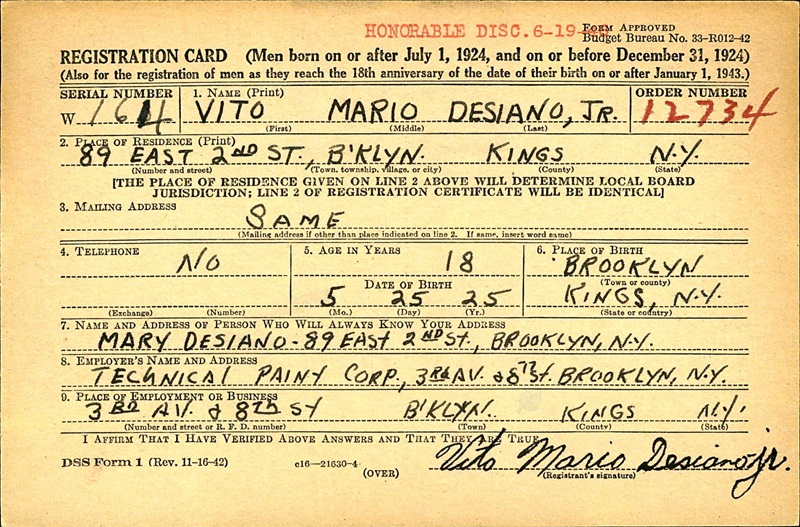 HONORABLE DISC. 6-19-
FORM APPROVED
Budget Bureau No. 33-R012-42
REGISTRATION CARD (Men born on or after July 1, 1924, and on or before December 31, 1924)
(Also for the registration of men as they reach the 18th anniversary of the date of their birth on or after January 1, 1943.)
SERIAL NUMBER 1. NAME (Print) ORDER NUMBER
W 164 VITO MARIO DESIANO, JR. 12734
(First) (Middle) (Last)
2. PLACE OF RESIDENCE (Print)
89 EAST 2ND ST., B'KLYN. KINGS N.Y.
(Number and street) (Town, township, village, or city) (County) (State)
[THE PLACE OF RESIDENCE GIVEN ON LINE 2 ABOVE WILL DETERMINE LOCAL BOARD
JURISDICTION; LINE 2 OF REGISTRATION CERTIFICATE WILL BE IDENTICAL]
3. MAILING ADDRESS
SAME
(Mailing address if other than place indicated on line 2. If same, insert word same)
4. TELEPHONE 5. AGE IN YEARS 6. PLACE OF BIRTH
NO 18 BROOKLYN
(Town or county)
DATE OF BIRTH
5 25 25 KINGS, N.Y.
(Exchange) (Number) (Mo.) (Day) (Yr.) (State or country)
7. NAME AND ADDRESS OF PERSON WHO WILL ALWAYS KNOW YOUR ADDRESS
MARY DESIANO - 89 EAST 2ND ST., BROOKLYN, N.Y.
8. EMPLOYER'S NAME AND ADDRESS
TECHNICAL PAINT CORP., 3RD AV. & 8TH ST. BROOKLYN, N.Y.
9. PLACE OF EMPLOYMENT OR BUSINESS
3RD AV. & 8TH ST B'KLYN. KINGS N.Y.
(Number and street or R. F. D. number) (Town) (County) (State)
I AFFIRM THAT I HAVE VERIFIED ABOVE ANSWERS AND THAT THEY ARE TRUE.
DSS Form 1 (Rev. 11-16-42) c16—21630-4 Vito Mario Desiano jr.
(OVER) (Registrant's signature)